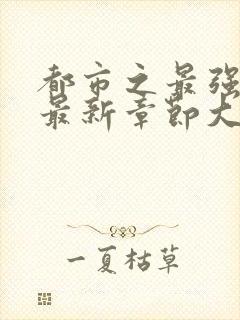 都市之最强
最新章节大
一夏枯草